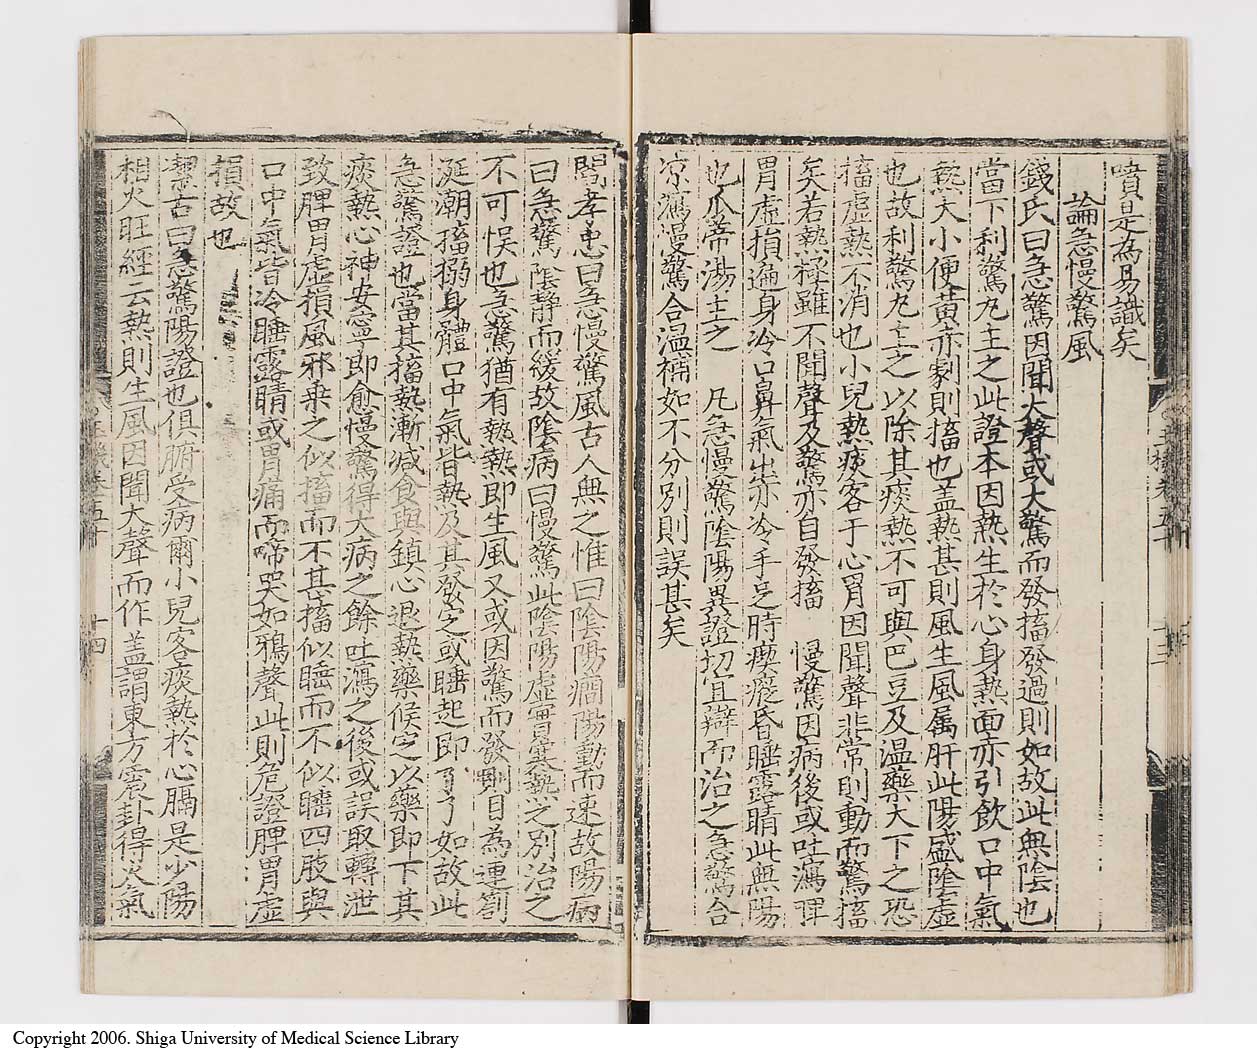 嘖是為易識矣
論急慢驚風
錢氏曰急驚因聞大聲或大驚而發搐發過則如故此無陰也
當下利驚丸主之此證本因熱生於心身熱面亦引飲口中氣
熱大小便黃亦劇則搐也盖熱甚則風生風属肝此陽盛陰虛
也故利驚丸主之以除其痰熱不可與巴豆及温藥大下之恐
搐虛熱不消也小兒熱痰客于心胃因聞聲非常則動而驚搐
矣若熱極雖不聞聲及驚亦自發搐 慢驚因病後或吐瀉脾
胃虛損遍身冷口鼻氣出亦冷手足時瘈瘲昏睡露睛此無陽
也瓜蒂湯主之 凡急慢驚陰陽異證切宜辯而治之急驚合
凉瀉慢驚合温補如不分別則誤甚矣
閻孝忠曰急慢驚風古人無之惟曰陰陽癎陽動而速故陽病
曰急驚陰靜而緩故陰病曰慢驚此陰陽虛實寒熱之別治之
不可悮也急驚猶有熱熱即生風又或因驚而發則目為連劄
涎潮搐搦身體口中氣皆熱及其發定或睡起即了了如故此
急驚證也當其搐熱漸減食與鎮心退熱藥候定以藥即下其
痰熱心神安寧即愈慢驚得大病之餘吐瀉之後或誤取轉泄
致脾胃虛損風邪乗之似搐而不甚搐似睡而不似睡四肢與
口中氣皆冷睡露睛或胃痛而啼哭如鴉聲此則危證脾胃虛
損故也
潔古曰急驚陽證也俱腑受病爾小兒客痰熱於心膈是少陽
相火旺經云熱則生風因聞大聲而作盖謂東方震卦得火氣
十四
Copyright 2006. Shiga University of Medical Science Library